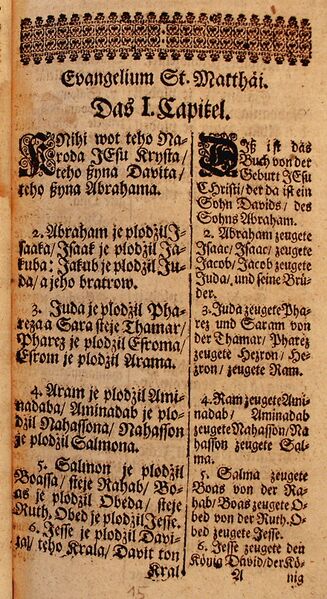 Evangelium St. Matthäi.
Das I. Capitel.
KNihi wot teho Na-
roda JEsu Krysta/
teho ßyna Davita/
teho ßyna Abrahama.
2. Abraham je plodżil J-
saaka/ Jsaak je plodżil Ja-
kuba: Jakub je plodżil Ju-
da/ a jeho bratrow.
3. Juda je plodżil Pha-
reza a Sara steje Thamar/
Pharez je plodżil Esroma/
Esrom je plodżil Arama.
4. Aram je plodżil Ami-
nadaba/ Aminadab je plo-
dżil Nahassona/ Nahasson
je plodżil Salmona.
5. Salmon je plodżil
Boassa/ steje Rahab/ Bo-
as je plodżil Obeda/ steje
Ruth. Obed je plodżil Jesse.
6. Jesse je plodżil Davi-
ta/ teho Krala/ Davit ton
Kral
DJß ist das
Buch von der
Geburt JEsu
Christi/ der da ist ein
Sohn Davids/ des
Sohns Abraham.
2. Abraham zeugete
Jsaac/ Jsaac/ zeugete
Jacob/ Jacob zeugete
Juda/ und seine Brü-
der.
3. Juda zeugete Pha-
rez und Saram von
der Thamar/ Pharez
zeugete Hezron/ He-
zron/ zeugete Ram.
4. Ram zeugete Ami-
nadab/ Aminadab
zeugete Nahasson/ Na-
hasson zeugete Sal-
ma.
5. Salma zeugete
Boas von der Ra-
hab/ Boas zeugete O-
bed von der Ruth. O-
bed zeugete Jesse.
6. Jesse zeugete den
König David/ der Kö-
A nig
15